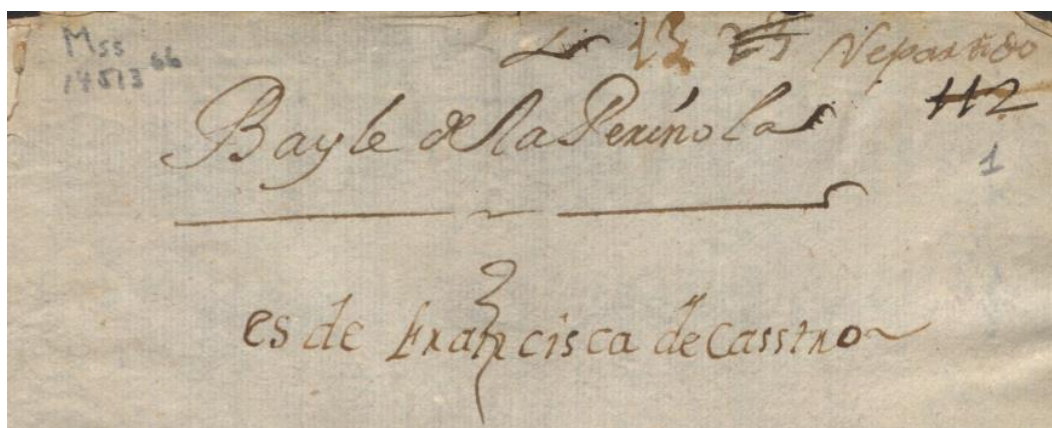 Mss
14513 66
L 13 Repartido
112
Bayle de la Perinola
1
es de Francisca de Casstro